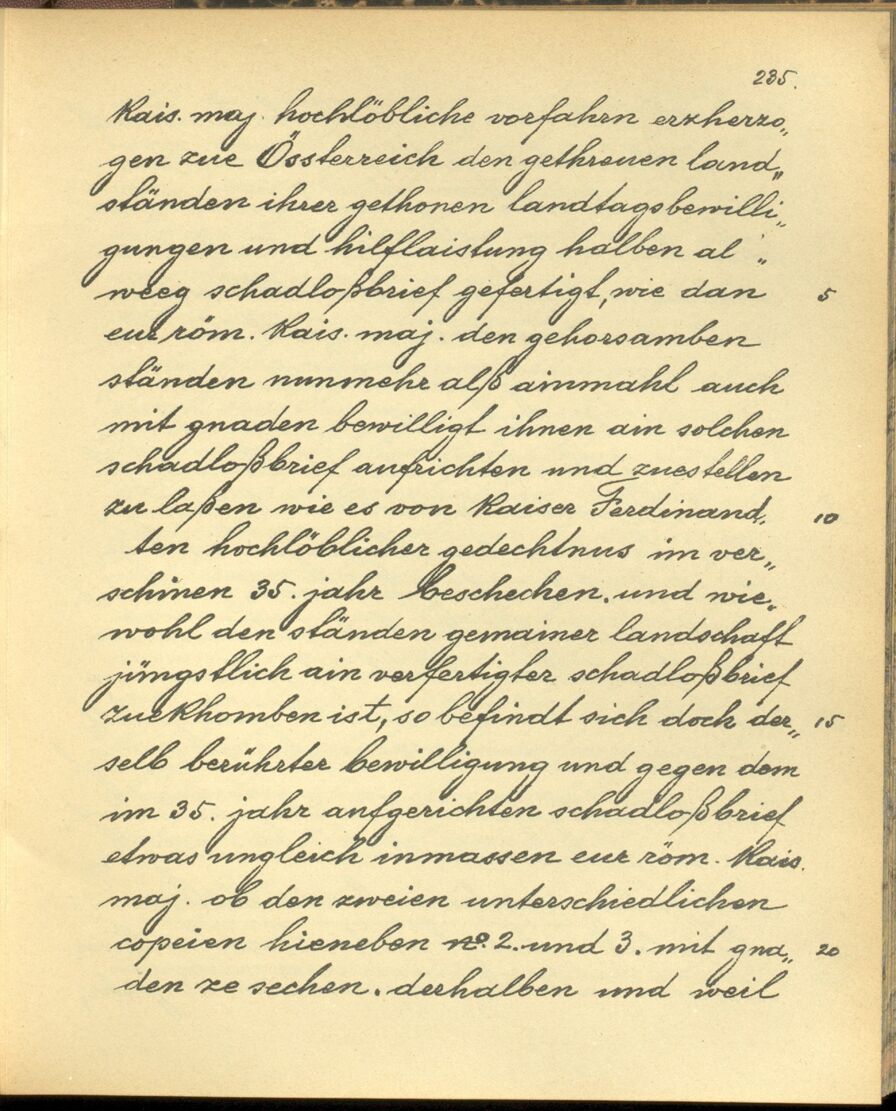 235.
Kais. maj. hochlöbliche vorfahrn erzherzo„
gen zue Össterreich den gethreuen land„
ständen ihrer gethonen landtagsbewilli„
gungen und hilflaistung halben al„
weeg schadloßbrief gefertigt, wie dan 5
eur röm. Kais. maj. den gehorsamben
ständen nunmehr alß ainmahl auch
mit gnaden bewilligt ihnen ain solchen
schadloßbrief aufrichten und zuestellen
zu laßen wie es von Kaiser Ferdinand„ 10
ten hochlöblicher gedechtnus im ver„
schinen 35. jahr beschechen. und wie„
wohl den ständen gemainer landschaft
jüngstlich ain verfertigter schadloßbrief
zuekhomben ist, so befindt sich doch der„ 15
selb berührter bewilligung und gegen dem
im 35. jahr aufgerichten schadloßbrief
etwas ungleich inmassen eur röm. Kais.
maj. ob den zweien unterschiedlichen
copeien hieneben no. 2. und 3. mit gna„ 20
den ze sechen. derhalben und weil